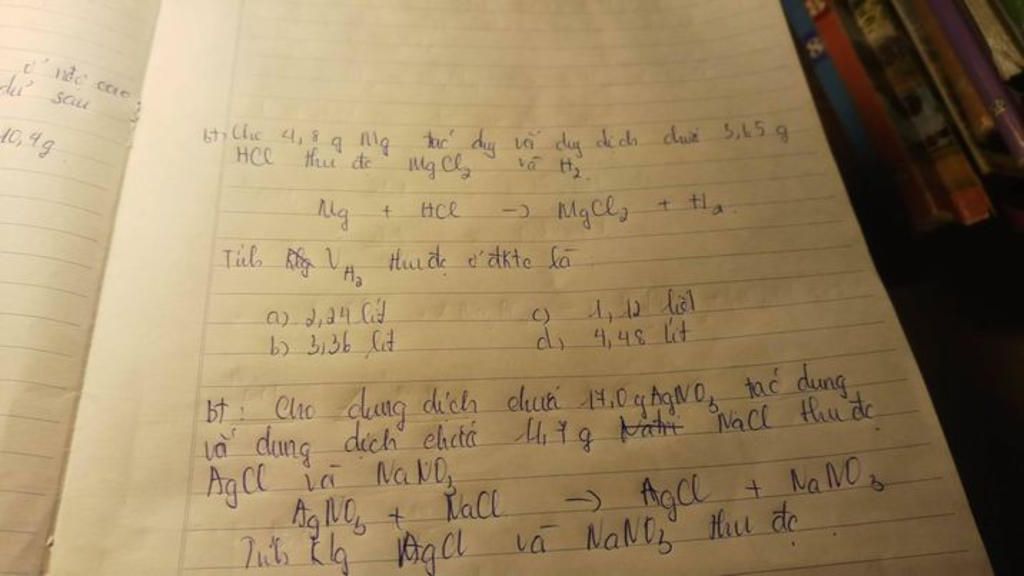 ở nhđ cao
dư sau
10,4g
bt: Cho 4,8 g Mg tác dụg vã dug dịch chưá 3,65 g
HCl thu đc MgCl2 và H2.
Mg + HCl -> MgCl2 + H2.
Tính VH2 thu đc ở đktc là
a) 2,24 lít c) 1,12 lít
b) 3,36 lít d) 4,48 lít
bt: Cho dung dịch chưá 17,0g AgNO3 tác dung
vớ dung dịch chưá 11,7g NaCl thu đc
AgCl và NaNO3
AgNO3 + NaCl -> AgCl + NaNO3
Tính klg AgCl và NaNO3 thu đc